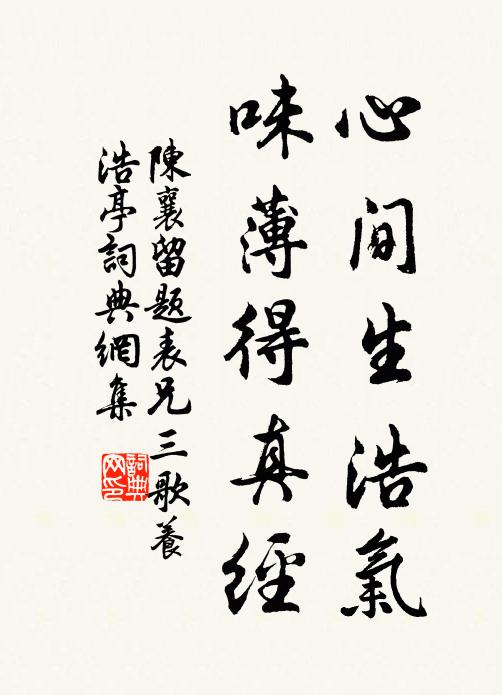 心間生浩氣
味薄得真經
陳襄留題表兄三歌養
浩亭詞典網集
詞典網印